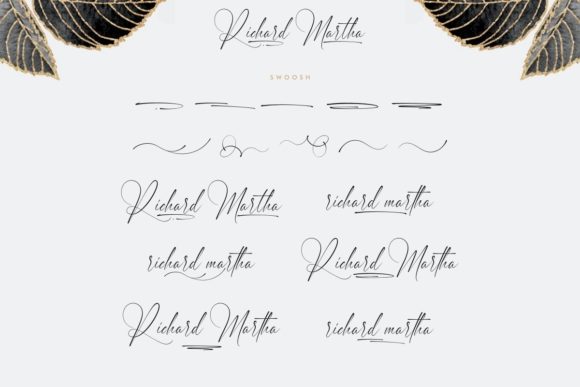 Richard Martha
SWOOSH
Richard Martha richard martha
richard martha Richard Martha
Richard Martha richard martha